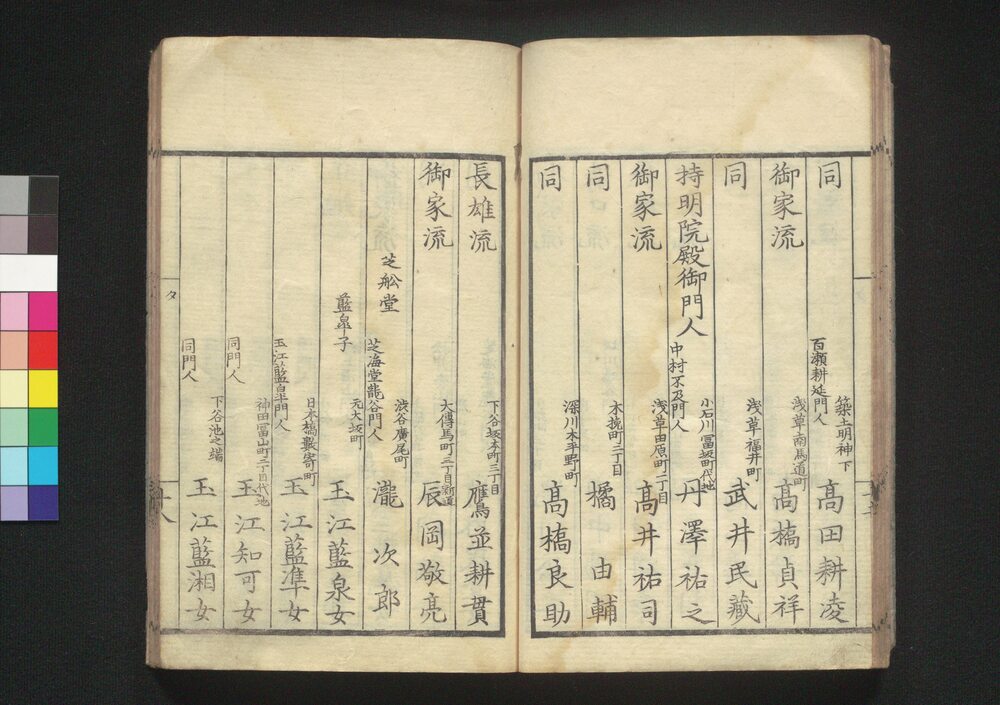 同 百瀬耕延門人 築土明神下 高田耕凌
御家流 浅草南馬道町 高橋貞祥
同 浅草福井町 武井民藏
持明院殿御門人 中村不及門人 小石川冨坂町代地 丹澤祐之
御家流 浅草田原町二丁目 高井祐司
同 木挽町三丁目 橘由輔
同 深川木平野町 高橋良助
長雄流 下谷坂本町三丁目 鴈並耕貫
御家流 大傳馬町二丁目新道 辰岡敬亮
芝舩堂 芝海堂龍谷門人 渋谷廣尾町 瀧次郎
藍皐子 元大坂町 玉江藍泉女
玉江藍皐門人 日本橋數寄町 玉江藍準女
同門人 神田冨山町二丁目代地 玉江知可女
同門人 下谷池之端 玉江藍湘女
タ